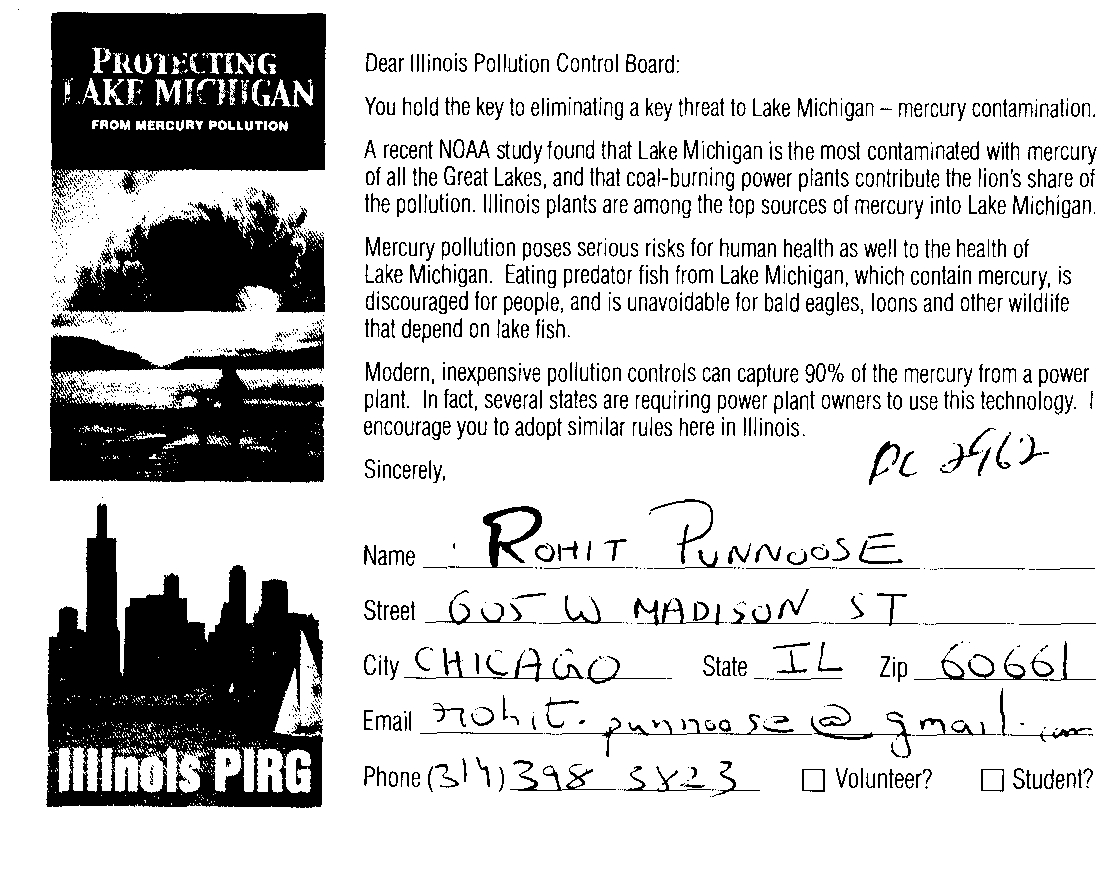 PROTECTING
LAKE MICHIGAN
FROM MERCURY POLLUTION
Illinois PIRG
Dear Illinois Pollution Control Board:
You hold the key to eliminating a key threat to Lake Michigan – mercury contamination.
A recent NOAA study found that Lake Michigan is the most contaminated with mercury
of all the Great Lakes, and that coal-burning power plants contribute the lion's share of
the pollution. Illinois plants are among the top sources of mercury into Lake Michigan.
Mercury pollution poses serious risks for human health as well to the health of
Lake Michigan. Eating predator fish from Lake Michigan, which contain mercury, is
discouraged for people, and is unavoidable for bald eagles, loons and other wildlife
that depend on lake fish.
Modern, inexpensive pollution controls can capture 90% of the mercury from a power
plant. In fact, several states are requiring power plant owners to use this technology. I
encourage you to adopt similar rules here in Illinois.
Sincerely,
PC 2962
Name ROHIT PUNNOOSE
Street 605 W MADISON ST
City CHICAGO State IL Zip 60661
Email rohit.punnoose@gmail.com
Phone (314) 398 5823 Volunteer? Student?